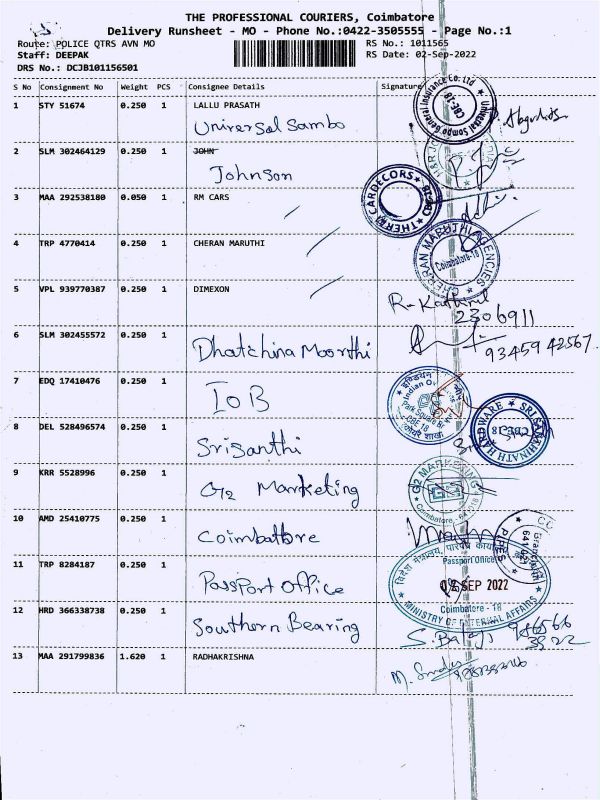 THE PROFESSIONAL COURIERS, Coimbatore
Delivery Runsheet - MO - Phone No.:0422-3505555 - Page No.:1
Route: POLICE QTRS AVN MO
RS No.: 1011565
Staff: DEEPAK
RS Date: 02-Sep-2022
DRS No.: DCJB101156501
S No Consignment No Weight PCS Consignee Details Signature
1 STY 51674 0.250 1 LALLU PRASATH
Universal Sambo
Universal Sompo General Insurance Co. Ltd
CBE-18
2 SLM 302464129 0.250 1 JOHN
Johnson
3 MAA 292538180 0.050 1 RM CARS
CARDECORS
4 TRP 4770414 0.250 1 CHERAN MARUTHI
CHERRAN MARUTHI AGENCIES
Coimbatore-18
5 VPL 939770387 0.250 1 DIMEXON
2306911
6 SLM 302455572 0.250 1
Dhatchina Moorthi
9345942567
7 EDQ 17410476 0.250 1
IOB
CBE 18
8 DEL 528496574 0.250 1
Srisanthi
HARDWARE
9 KRR 5528996 0.250 1
G2 Marketing
G2 MARKETING
Coimbatore
10 AMD 25410775 0.250 1
Coimbatore
11 TRP 8284187 0.250 1
Passport Office
Passport Office
02 SEP 2022
Coimbatore - 18
MINISTRY OF EXTERNAL AFFAIRS
12 HRD 366338738 0.250 1
Southern Bearing
13 MAA 291799836 1.620 1 RADHAKRISHNA